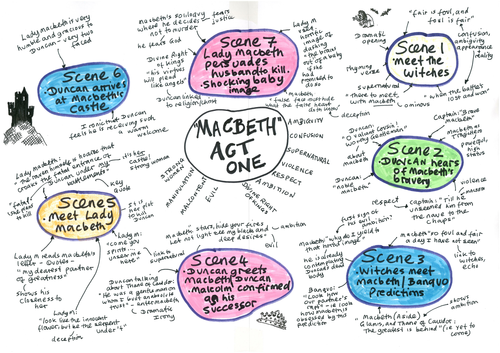 "MACBETH"
ACT
ONE
AMBIGUITY
CONFUSION
SUPERNATURAL
VIOLENCE
RESPECT
AMBITION
DIVINE RIGHT
OF KINGS
EVIL
MALCONTENT
MANIPULATION
STRONG
WOMAN
Scene 1
·meet the
witches
"fair is foul, and
foul is fair"
Dramatic
opening
confusion,
ambiguity
appearance
reality
rhyming
verse
supernatural
"there to meet
with macbeth"
ominous
"when the battle's
lost and won"
Scene 2
·DUNCAN hears
of Macbeth's
bravery
Captain: "Brave
macbeth"
Duncan:
"O valiant cousin!
worthy gentleman!"
about
macbeth
Duncan:
"noble
macbeth"
powerful
status
violence
respect
Captain: "Till he
unseamed him from
the nave to the
chaps"
Scene 3
·Witches meet
macbeth/BANQUO
·Predictions
macbeth: "so foul and fair
a day I have not seen"
link to
witches,
echo
first sign of
his ambition?
macbeth: "why do I yield to
that horrid image?"
he is already
contemplating
Duncan's dead
body
Banquo: "Look
how our
partner's
rapt"
shows
ambition
Macbeth (Aside)
Glamis, and Thane of Cawdor:
The greatest is behind" (ie yet to
come)
Scene 4
·Duncan greets
macbeth/Duncan
·'Malcolm' confirmed
as his
successor
macbeth: "stars, hide your fires!
Let not light see my black and
deep desires"
ambition
evil
Duncan talking
about Thane of Cawdor:
"He was a gentleman on
whom I built an absolute
trust"
Dramatic
Irony
Scene 5
·meet Lady
Macbeth
Lady macbeth:
"The raven himself is hoarse that
croaks the fatal entrance of
Duncan"
key
quote
strong woman
Lady m:
"come you
spirits...
unsex me
here"
Lady m reads macbeth's
letter - Quote -
"my dearest partner
of greatness"
shows his
closeness to
her
Lady m:
"look like the innocent
flower, but be the serpent
under 't"
Scene 6
·Duncan arrives
at Macbeth's
Castle
Lady macbeth very
humble and gracious to
Duncan - very
two faced
Ironic that Duncan
feels he is receiving such
a warm
welcome
Scene 7
·Lady Macbeth
persuades
husband to kill.
·Shocking baby
image
macbeth's soliloquy
where he decides
not to murder
fears
justice
he fears God
Divine Right
of kings
"his virtues
will plead
like angels"
Duncan linked
to religion/Christ
Lady m
uses
horrific
image of
dashing
the brains
out of a baby
if she
had
promised to
do so
macbeth:
"false face must hide
what the false heart
doth know"
deception